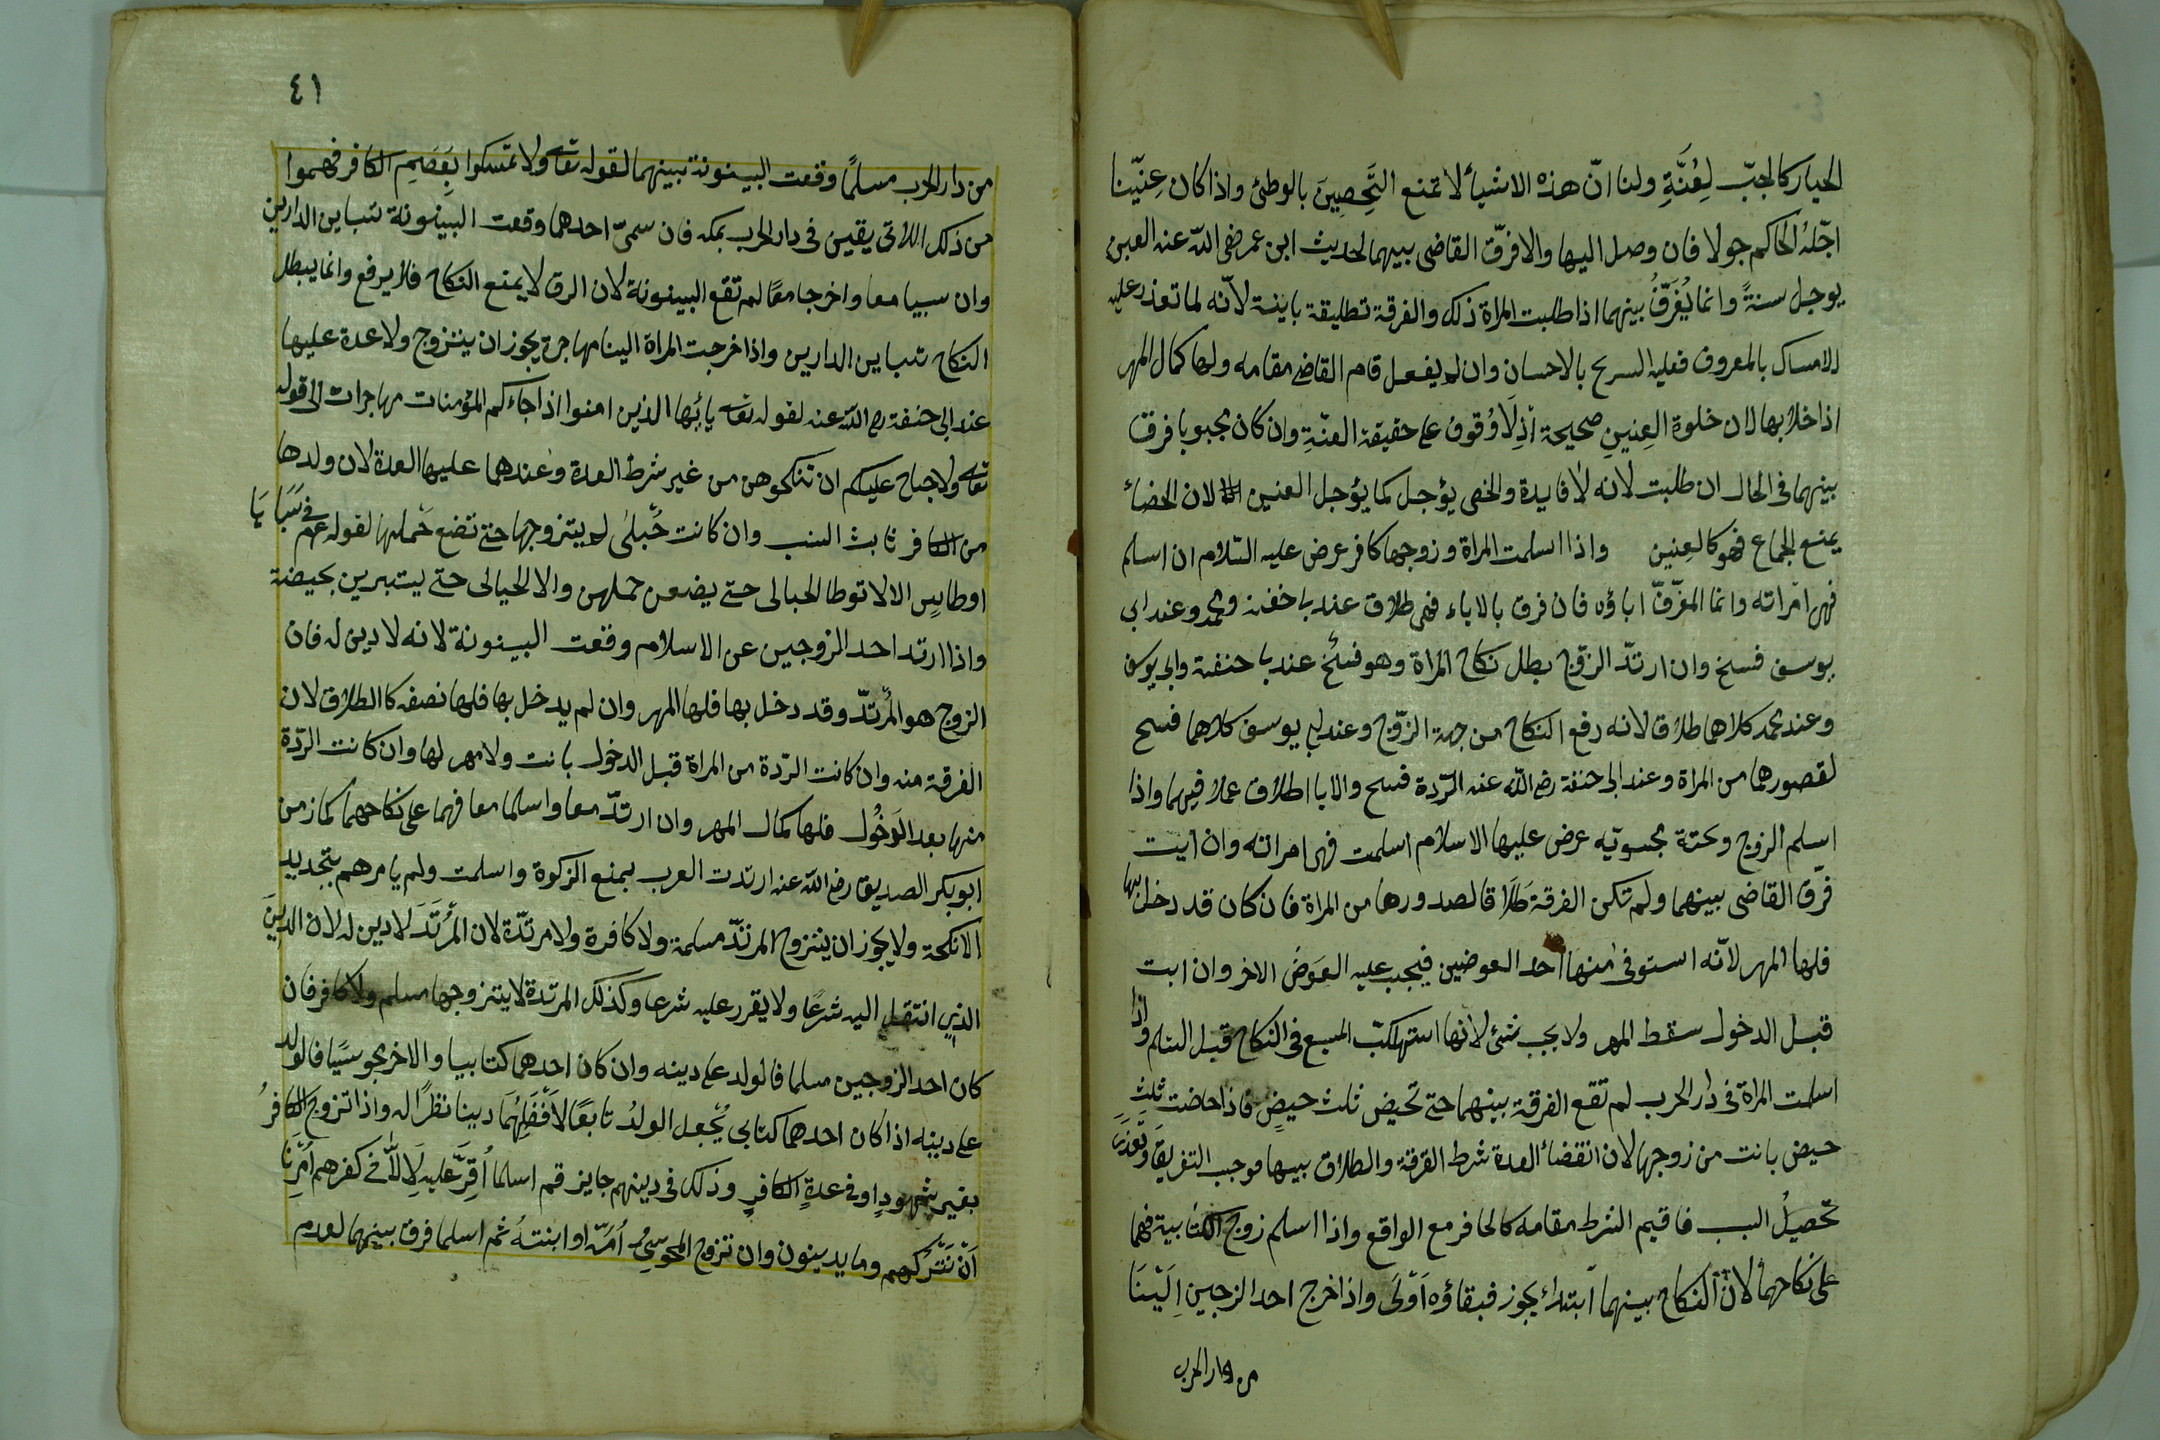 الخيار كالجبّ لِعُنَّةٍ ولنا انّ هذه الاشيأ لا تمنع التَّحصِينَ بالوطئ واذا كان عِنِّينا
اجّلهُ الحاكم حولا فان وصل اليها والا فرّق القاضى بينهما لحديث ابن عمر رضى اللّه عنه العنين
يوجل سنةً وانما يُفَرَّقُ بينهما اذا طلبت المراة ذلك والفرقة تطليقة باينة لانّه لما تعذر عليه
الامساك بالمعروف فعليه التسريح بالاحسان وان لم يفعل قام القاضى مقامه ولها كمال المهر
اذا خلا بها لان خلوة العِنينِ صحيحة اذِ لَا وُقوف على حقيقة العنّةِ وان كان مجبوبا فرق
بينهما فى الحال ان طلبت لانه لا فايدة والخصى يؤجل كما يوُجل العنين لان الخصاء
يمنع الجماع فهو كالعِنين واذا اسلمت المراة وزوجها كافر عرض عليه السّلام ان اسلم
فهى امراته وانما المفرّق اباؤه فان فرق بالاباء فهى طلاق عند با حنفة ومحمد وعند ابى
يوسف فسخ وان ارتدّ الزوّج بطل نكاح المراة وهو فسخٌ عند با حنفة وابى يوسف
وعند محمد كلاهما طلاق لانه رفع النكاح من جهة الزوّج وعند ابى يوسف كلاهما فسح
لقصورهما من المراة وعند ابى حنفة رضى اللّه عنه الردّة فسح والابا اطلاق عملا فيهما واذا
اسلم الزوج وتحته مجسوتيه عرض عليها الاسلام اسلمت فهى امراته وان ابيت
فرّق القاضى بينهما ولم تكن الفرقة طَلَاقا لصدورها من المراة فان كان قد دخل بها
فلها المهر لانّه استوفى منها احد العوضين فيجب عليه العوَضَ الاخر وان ابت
قبل الدخول سقط المهر ولا يجب شئ لانها استهلكت المبيع فى النكاح قبل التسلم واذا
اسلمت المراة فى دار الحرب لم تقع الفرقة بينهما حتى تحيض ثلث حيضٍ فاذا حاضت ثلث
حيض بانت من زوجها لان انقضاء العدة شرط الفرقة والطلاق بينهما موجب التفريق وتعذر
تحصيلُ السبب فاقيم الشرط مقامه كالحافر مع الواقع واذا اسلم زوج الكتابية فهما
على نكاحهما لان النكاح بينهما ابتداء يجوز فبقاؤه اَوْلَى واذا خرج احد الزجين اِلَيْنَا
من دار الحرب
٤١
من دار الحرب مسلمًا وقعت البينونة بينهما لقوله تعالى ولا تمسكوا بِعَصَمِ الكافر فهموا
من ذلك اللاتى يقين فى دار الحرب بمكه فان سمىّ احدهما وقعت البينونة بتباين الدارين
وان سبيا معا واخرجا معًا لم تقع البينونة لان الرق لا يمنع النكاح فلا يرفع وانما يبطل
النكاح تباين الدارين واذا خرجت المراة الينا مهاجرة يجوز ان يتزوج ولا عدة عليها
عند ابى حنفة رضى اللّه عنه لقوله تعالى يا ايُّها الذين امنوا اذا جاءكم المؤمنات مهاجرات الى قوله
تعالى ولا جناح عليكم ان تنكحوهن من غير شرط العدة وعندهما عليها العدة لان ولدها
من الكافر ثابث النسب وان كانت حُبلىَ لم يتزوجها حتى تضع حَملها لقوله عم فى سَبَايَا
اوطاسٍ الا لا توطا الحبالى حتى يضعن حملهن والا الحيالى حتى يستبرين بحيضة
واذا ارتد احد الزوجين عن الاسلام وقعت البينونة لانه لا دين له فان
الزوج هو المُرتدّ وقد دخل بها فلها المهر وان لم يدخل بها فلها نصفه كا الطلاق لان
الفرقة منه وان كانت الرّدة من المراة قبل الدخول بانت ولا مهر لها وان كانت الردّة
منها بعد الدَخُول فلها كمال المهر وان ارتدّ معا واسلما معا فهما على نكاحهما كما زمن
ابو بكر الصديق رضى اللّه عنه ارتدت العرب بمنع الزكوة واسلمت ولم يامرهم بتجديد
الانكحة ولا يجوز ان يتزوج المرتدّ مسلمة ولا كافرة ولا مرتدّة لان المُرْتَدَ لا دين له لان الدين
الذى انتقل اليه شرعًا ولا يقرر عليه شرعا وكذلك المرتدة لا يتزوجها مسلم ولا كافر فان
كان احد الزوجين مسلما فالولد على دينه وان كان احدهما كتابيا والاخر مجوسًيا فالولد
على دينه اذا كان احدهما كتابي يُجعل الولدُ تابعًا لاَفْضَلِهُمَا دينا نظرًا له واذا تزوج الكافرُ
بغير شهودٍ او فى عدةِ الكافرِ وذلك فى دينهم جايز قم اسلما اُقِرَّ عليه لاِنّا فى كفرهم اُمِرْنا
اَنْ نَتْرُكهم وما يدينون وان تزوج المجوسِىُ اُمَّهُ او ابنتهُ ثم اسلما فرق بينهما لعدم